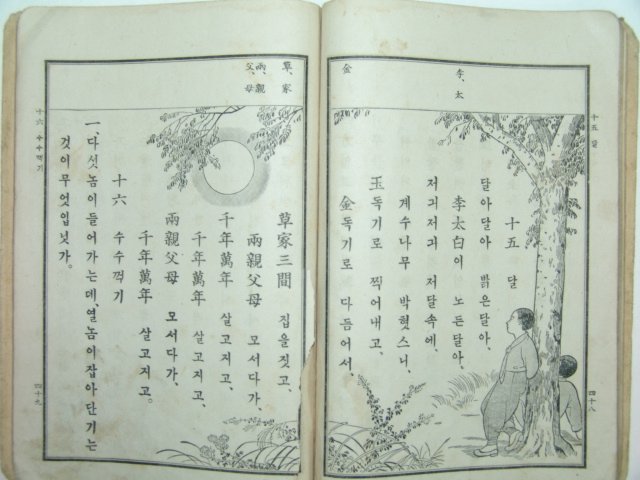 十五 달
李、太
金
十五 달
달아달아 밝은달아、
李太白이 노든달아、
저긔저긔 저달속에、
계수나무 박혓스니、
玉독기로 찍어내고、
金독기로 다듬어서、
四十八
草、家
兩、親
父、母
草家三間 집을짓고、
兩親父母 모서다가、
千年萬年 살고지고、
千年萬年 살고지고、
兩親父母 모서다가、
千年萬年 살고지고。
十六 수수꺽기
一、다섯놈이들어가는데、열놈이잡아단기는
것이무엇입닛가。
十六 수수꺽기
四十九